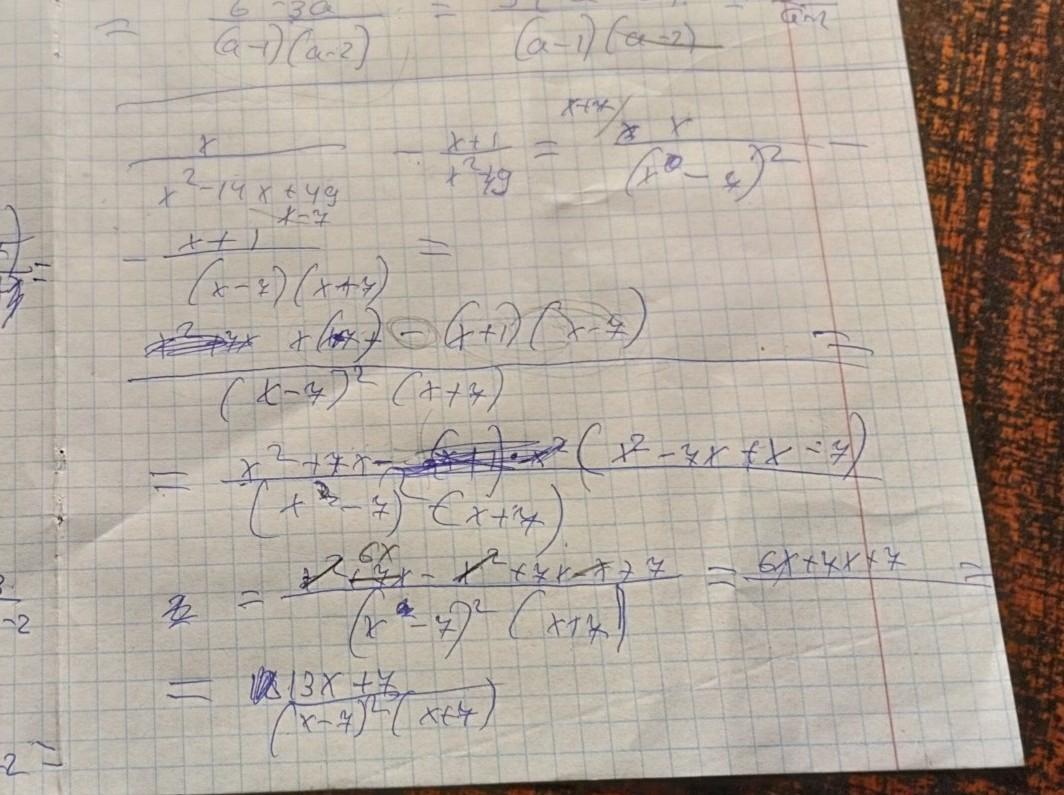 = 6-3a / (a-1)(a-2) = / (a-1)(a-2)
x / x²-14x+49 - x+1 / x²-49 = x+7/ x / (x-7)² -
- x+1 / (x-7)(x+7) x-7 =
x(x+7) - (x+1)(x-7) / (x-7)² (x+7) =
= x²+7x - (x²-7x+x-7) / (x-7)² (x+7)
= x²+7x - x²+7x-x+7 / (x-7)² (x+7) 6x = 6x+7x+7 =
= 13x+7 / (x-7)² (x+7)